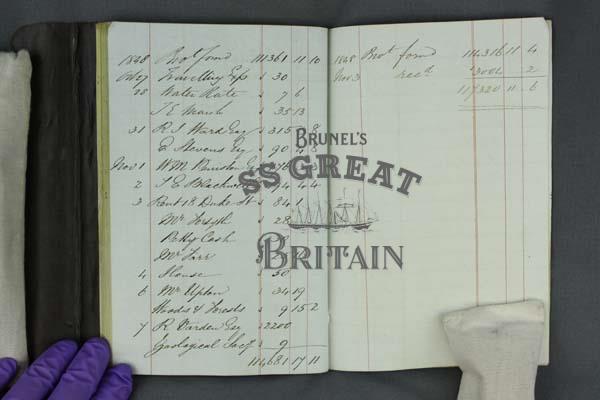 1848 Brot forwd 111361 11 10
Oct 27 Travelling Exps " 30
28 Water Rate " 7 6
T E Marsh " 35 13
31 R J Ward Esq " 315 8
E Stevens Esq " 90 4 8
Nov 1 W M
2 T E Blackwell 4 4
3 Rent 18 Duke St " 84 1
Mr Forsyth " 28
Petty Cash
Mr
4 House " 50
6 Mr Upton 34 19
Woods & Forests " 9 15 2
7 R Varden Esq 2200
Geological Socy " 9
114681 17 11
1848 Brot forwd 114316 11 4
Nov 3 recd 3004 2
117320 11 6
BRUNEL'S
SS GREAT
BRITAIN